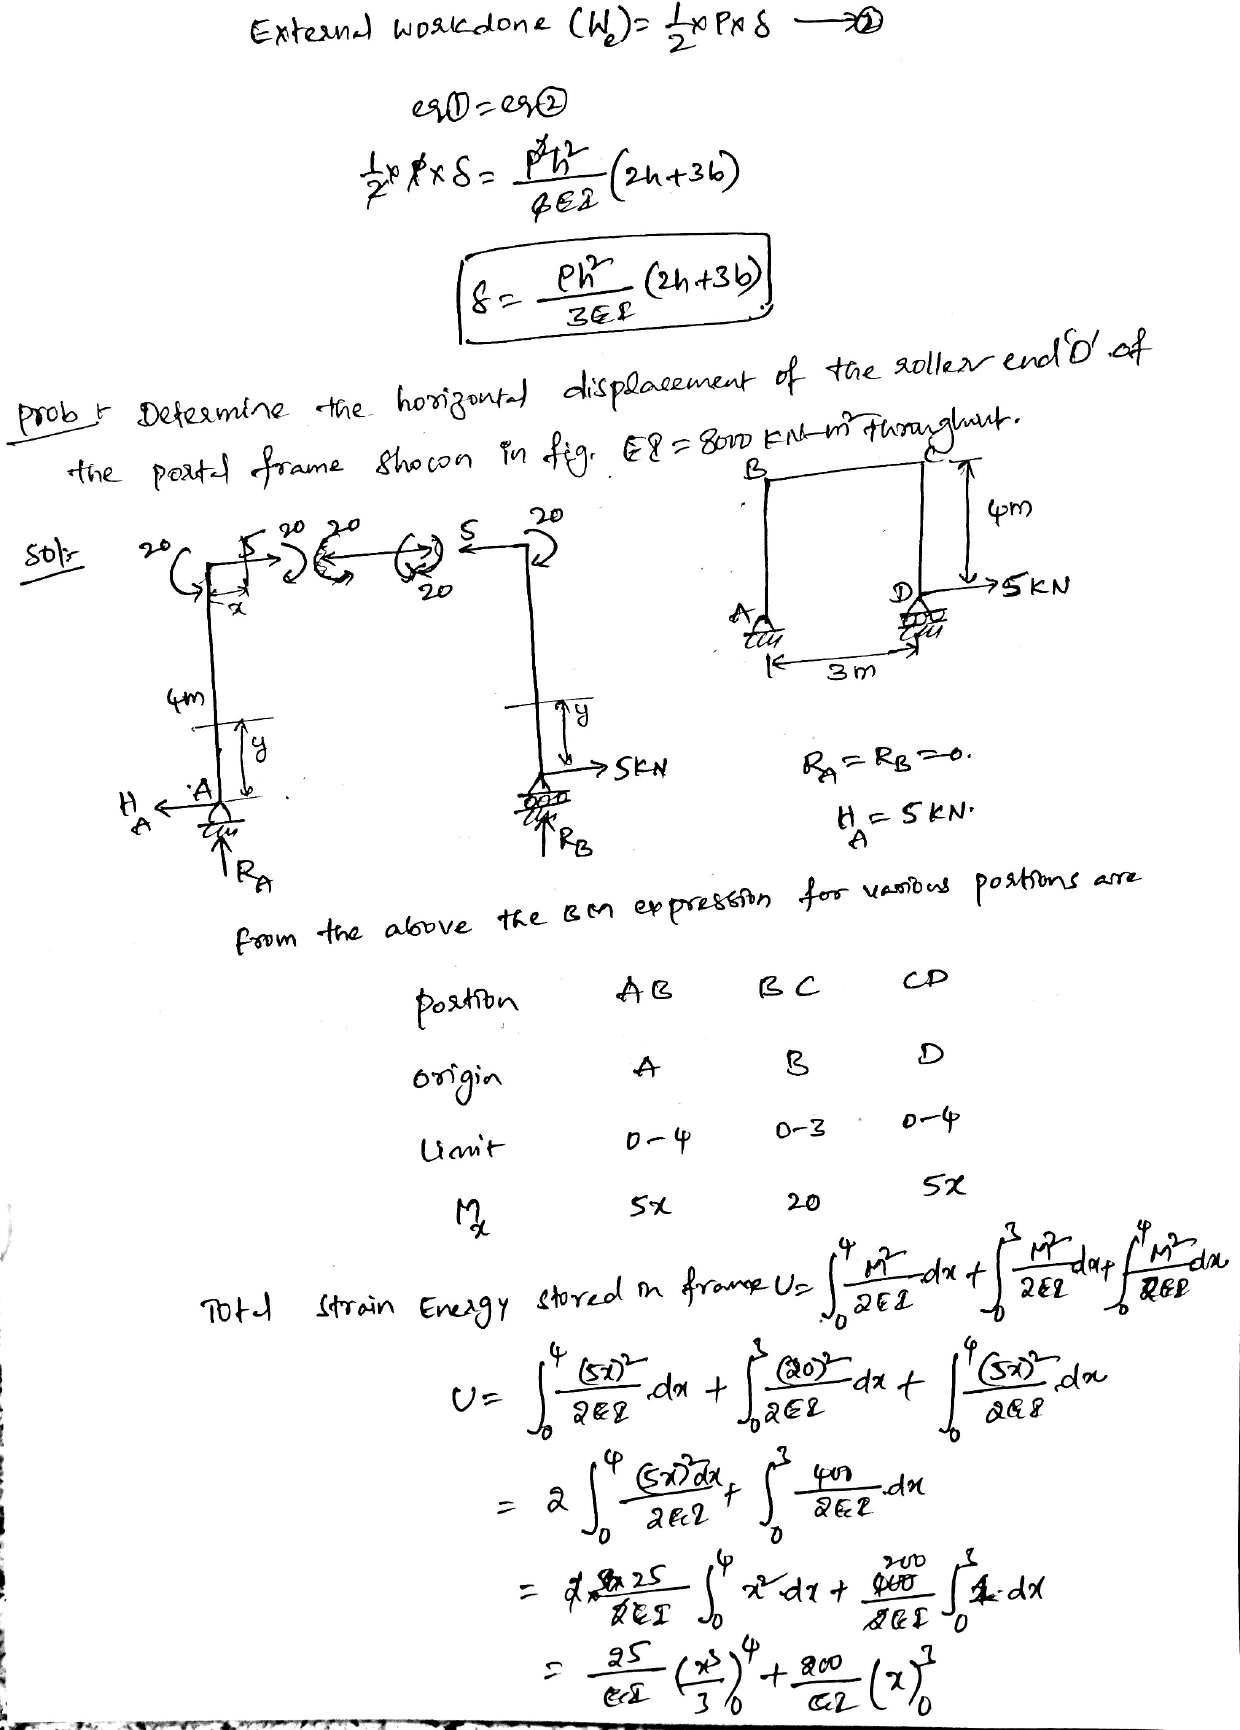 External workdone (We) = 1/2 x P x δ → ②
eq① = eq②
1/2 x P x δ = P²h²/6EI (2h+3b)
δ = Ph²/3EI (2h+3b)
prob:- Determine the horizontal displacement of the roller end 'D' of
the portal frame shown in fig. EI = 8000 KN-m² throughout.
B C
4m
D 5KN
A
3m
Sol:-
20 5 20 20 5 20
x 20
4m
y y
HA A 5KN
RA RB
RA = RB = 0.
HA = 5 KN.
from the above the BM expression for various portions are
portion AB BC CD
origin A B D
Limit 0-4 0-3 0-4
Mx 5x 20 5x
Total strain Energy stored in frame U = ∫₀⁴ M²/2EI dx + ∫₀³ M²/2EI dx + ∫₀⁴ M²/2EI dx
U = ∫₀⁴ (5x)²/2EI dx + ∫₀³ (20)²/2EI dx + ∫₀⁴ (5x)²/2EI dx
= 2 ∫₀⁴ (5x)²dx/2EI + ∫₀³ 400/2EI dx
= 2 x 25/2EI ∫₀⁴ x² dx + 200 400/2EI ∫₀³ 1. dx
= 25/EI (x³/3)₀⁴ + 200/EI (x)₀³